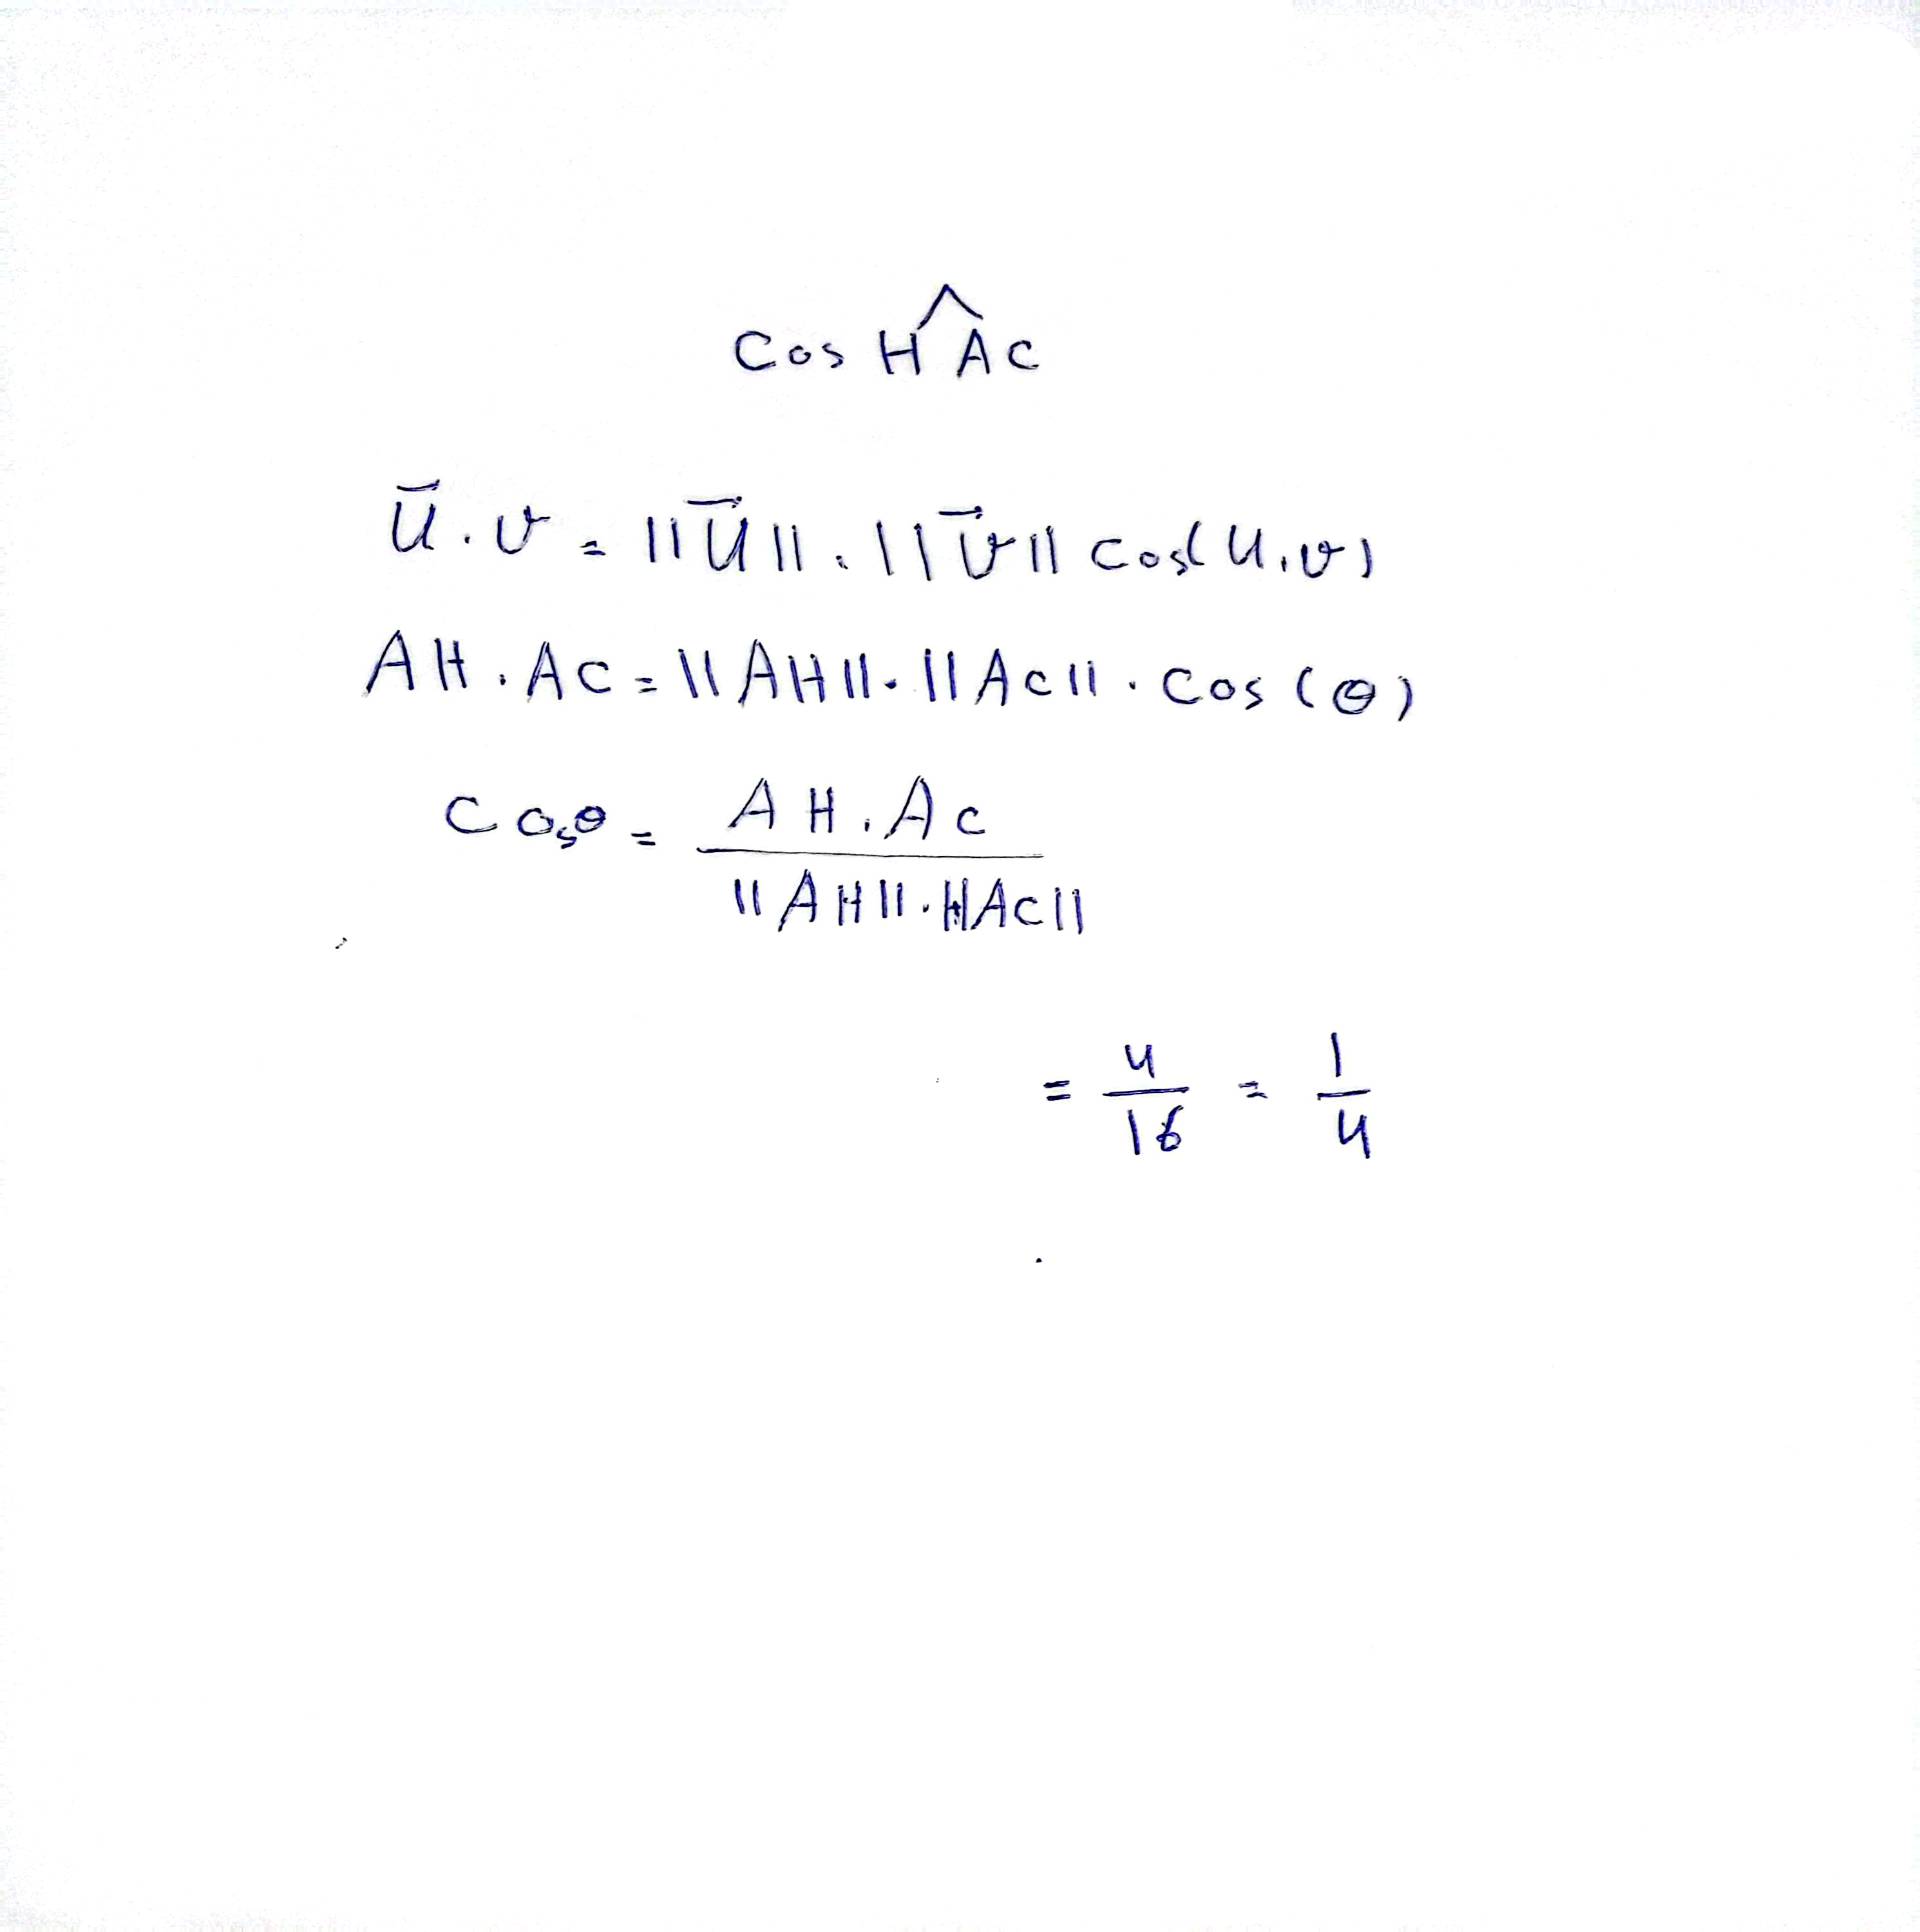 cos HÂC
ū.v = ||ū||.||v̄|| cos(u.v)
AH.AC = ||AH||.||AC||.cos(θ)
cosθ = AH.AC / ||AH||.||AC||
= 4/16 = 1/4